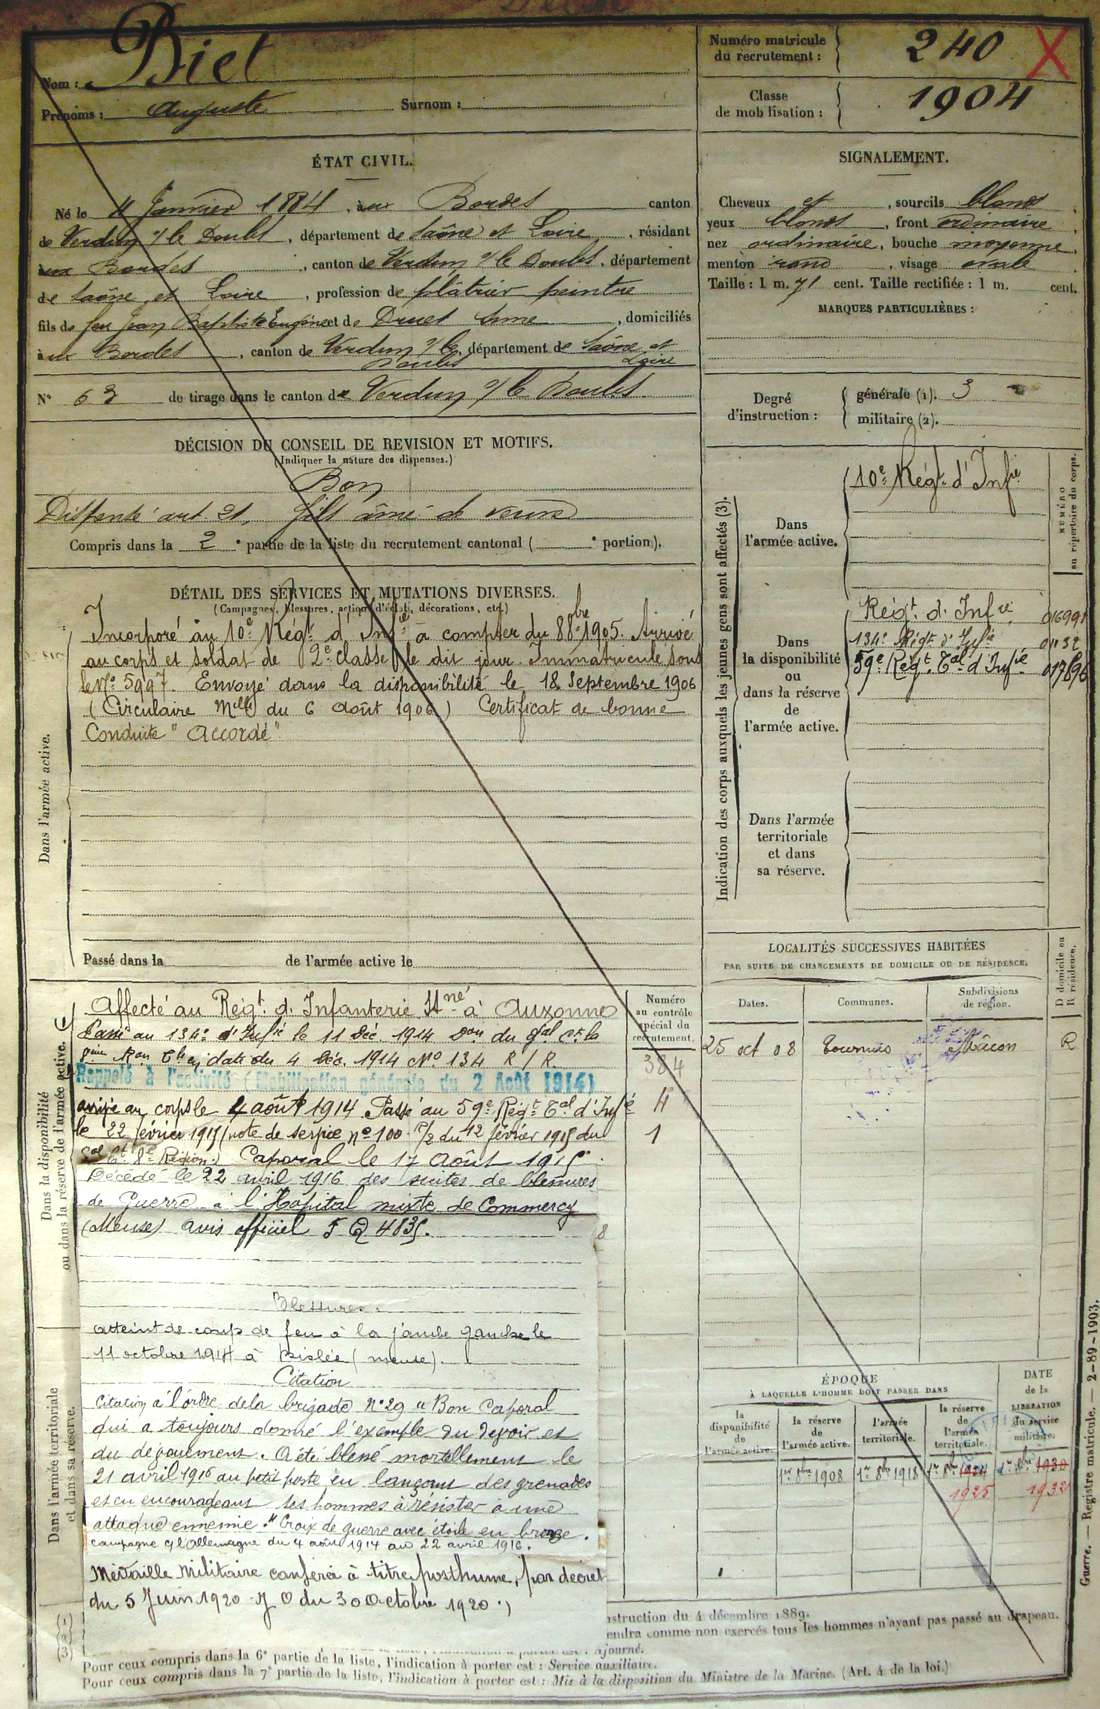 Nom : Biet
Prénoms : Auguste Surnom :
Numéro matricule du recrutement : 240 X
Classe de mobilisation : 1904
ÉTAT CIVIL.
Né le 4 Janvier 1884, aux Bordes canton
de Verdun s/ le Doubs, département de Saône et Loire, résidant
aux Bordes, canton de Verdun s/ le Doubs, département
de Saône et Loire, profession de plâtrier peintre
fils de feu Jean Baptiste Eugène et de Druet Anne, domiciliés
à aux Bordes, canton de Verdun s/ le Doubs, département de Saône et Loire
N° 63 de tirage dans le canton de Verdun s/ le Doubs
SIGNALEMENT.
Cheveux et, sourcils blonds
yeux blonds, front ordinaire,
nez ordinaire, bouche moyenne
menton rond, visage ovale
Taille : 1 m. 71 cent. Taille rectifiée : 1 m. cent.
MARQUES PARTICULIÈRES :
Degré d'instruction :
générale (1). 3
militaire (2).
DÉCISION DU CONSEIL DE REVISION ET MOTIFS.
(Indiquer la nature des dispenses.)
Bon
Dispensé art 21, fils aîné de veuve
Compris dans la 2e partie de la liste du recrutement cantonal ( e portion).
DÉTAIL DES SERVICES ET MUTATIONS DIVERSES.
(Campagnes, blessures, actions d'éclat, décorations, etc.)
Dans l'armée active.
Incorporé au 10e Régt. d'Infie à compter du 8 8bre 1905. Arrivé
au corps et soldat de 2e classe le dit jour. Immatriculé sous
le No 5997. Envoyé dans la disponibilité le 18 Septembre 1906
(Circulaire Mlle du 6 Août 1906) Certificat de bonne
Conduite "Accordé"
Passé dans la de l'armée active le
Indication des corps auxquels les jeunes gens sont affectés (3).
NUMÉRO au répertoire du corps.
Dans l'armée active.
10e Régt. d'Infie
Dans la disponibilité ou dans la réserve de l'armée active.
Régt. d. Infie 016991
134e Régt d'Infie 01132
59e Régt. Tal d'Infie 017696
Dans l'armée territoriale et dans sa réserve.
LOCALITÉS SUCCESSIVES HABITÉES
PAR SUITE DE CHANGEMENTS DE DOMICILE OU DE RÉSIDENCE.
Dates. Communes. Subdivisions de région. D domicile ou R résidence.
25 oct 08 Tournus Mâcon R
Dans la disponibilité ou dans la réserve de l'armée active.
Numéro au contrôle spécial du recrutement.
384
4
1
Affecté au Régt. d. Infanterie Sné à Auxonne
Passé au 134e d'Infie le 11 Déc. 1914 Don du Gal Ct la
8ème Ron Tle en date du 4 Déc. 1914 No 134 R/R
Rappelé à l'activité (Mobilisation générale du 2 Août 1914)
arrivé au corps le 4 août 1914 Passé au 59e Régt. Tal d'Infie
le 22 février 1915 note de service no 100 R/2 du 12 février 1915 du
Gal Ct 8e Région. Caporal le 17 Août 1915.
Décédé le 22 avril 1916 des suites de blessures
de Guerre à l'Hôpital mixte de Commercy
(Meuse) avis officiel 5 Q 4835.
Blessures.
atteint de coup de feu à la jambe gauche le
11 octobre 1914 à (meuse).
Citation
Citation à l'ordre de la brigade No 29 "Bon Caporal
qui a toujours donné l'exemple du devoir et
du dévouement. A été blessé mortellement le
21 avril 1916 au petit poste en lançant des grenades
et en encourageant ses hommes à résister à une
attaque ennemie." Croix de guerre avec étoile en bronze.
campagne c/ l'Allemagne du 4 août 1914 au 22 avril 1916.
Médaille Militaire conférée à titre posthume, par décret
du 5 Juin 1920 J O du 30 Octobre 1920.
Dans l'armée territoriale et dans sa réserve.
ÉPOQUE
À LAQUELLE L'HOMME DOIT PASSER DANS
la disponibilité de l'armée active.
la réserve de l'armée active.
l'armée territoriale.
la réserve de l'armée territoriale.
DATE de la LIBÉRATION du service militaire.
1er 8bre 1908 1er 8bre 1918 1er 8bre 1924 1er 8bre 1930
1925 1932
Guerre. — Registre matricule. — 2-89-1903.
(1) (2) (3)
nstruction du 4 décembre 1889.
endra comme non exercés tous les hommes n'ayant pas passé au drapeau.
ajourné.
Pour ceux compris dans la 6e partie de la liste, l'indication à porter est : Service auxiliaire.
Pour ceux compris dans la 7e partie de la liste, l'indication à porter est : Mis à la disposition du Ministre de la Marine. (Art. 4 de la loi.)